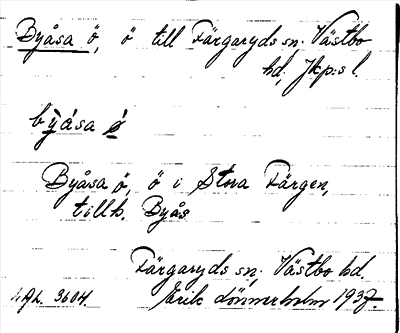 Byåsa ö, ö till Färgaryds sn, Västbo
hd, Jkp:s l.
bỳása ǿ
Byåsa ö, ö i Stora Färgen,
tillh. Byås
Färgaryds sn, Västbo hd.
3604. Erik Lönnerholm 1937.